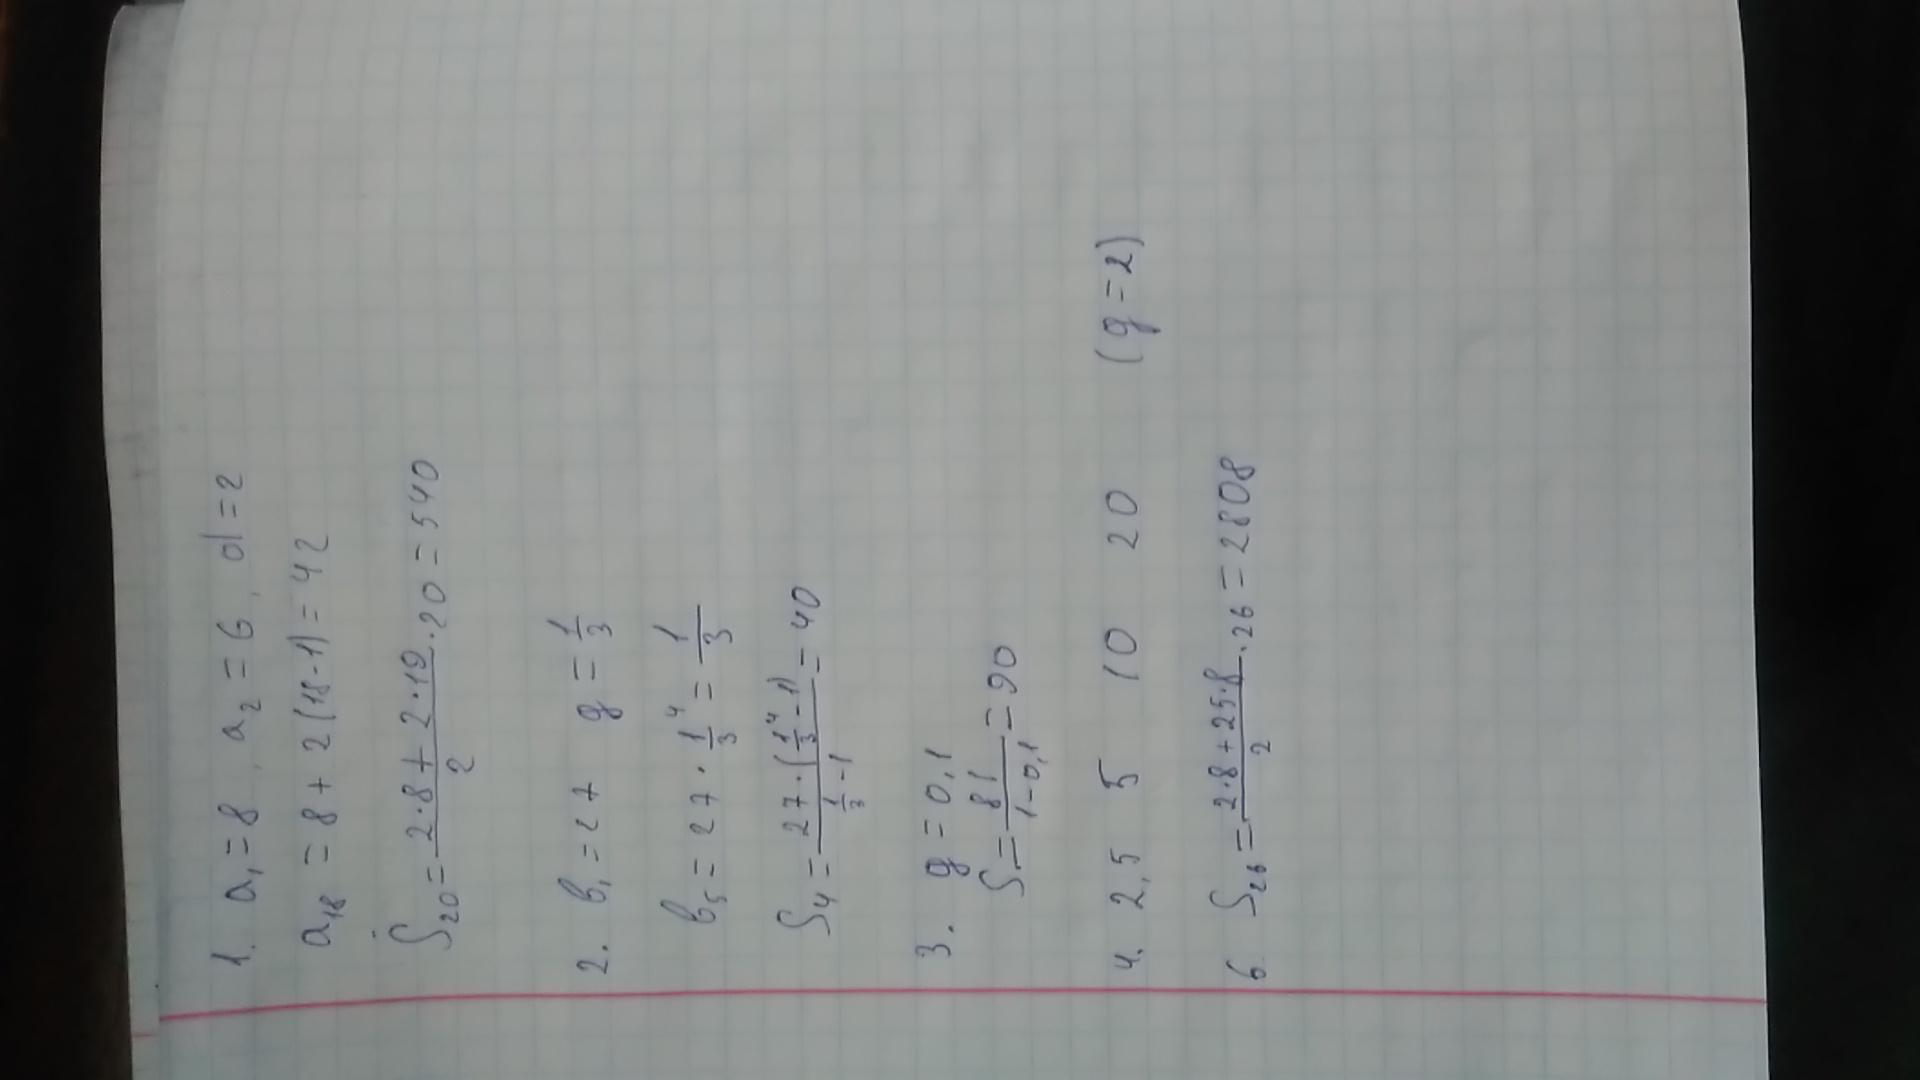 1. a₁ = 8, a₂ = 6, d = 2
a₁₈ = 8 + 2(18-1) = 42
S₂₀ = (2·8 + 2·19)/2 · 20 = 540
2. b₁ = 27 q = 1/3
b₅ = 27 · 1/3⁴ = 1/3
S₄ = 27·(1/3⁴ - 1)/(1/3 - 1) = 40
3. q = 0,1
S = 81/(1-0,1) = 90
4. 2,5 5 10 20 (q = 2)
6 S₂₆ = (2·8 + 25·8)/2 · 26 = 2808